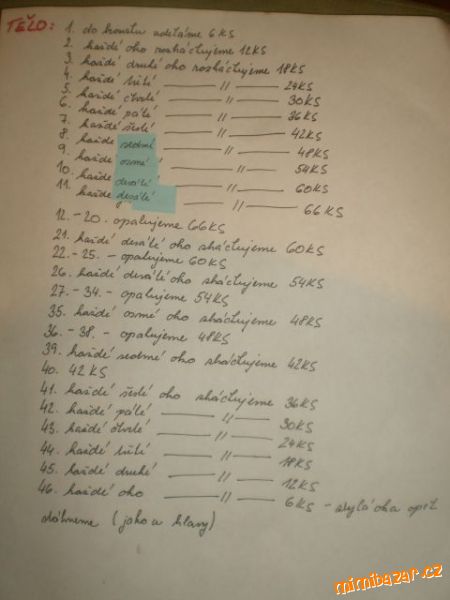 TĚLO: 1. do kroužku uděláme 6KS
2. každé oko rozháčkujeme 12KS
3. každé druhé oko rozháčkujeme 18KS
4. každé třetí —— // —— 24KS
5. každé čtvrté —— // —— 30KS
6. každé páté —— // —— 36KS
7. každé šesté —— // —— 42KS
8. každé sedmé —— // —— 48KS
9. každé osmé —— // —— 54KS
10. každé deváté —— // —— 60KS
11. každé desáté —— // —— 66KS
12.-20. opakujeme 66KS
21. každé desáté oko sháčkujeme 60KS
22.-25. - opakujeme 60KS
26. každé deváté oko sháčkujeme 54KS
27.-34. - opakujeme 54KS
35. každé osmé oko sháčkujeme 48KS
36.-38. - opakujeme 48KS
39. každé sedmé oko sháčkujeme 42KS
40. 42KS
41. každé šesté oko sháčkujeme 36KS
42. každé páté —— // —— 30KS
43. každé čtvrté —— // —— 24KS
44. každé třetí —— // —— 18KS
45. každé druhé —— // —— 12KS
46. každé oko —— // —— 6KS - zbylá oka opět
stáhneme (jako u hlavy)
mimibazar.cz